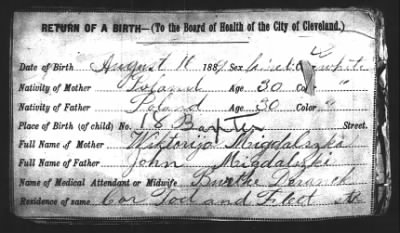 RETURN OF A BIRTH—(To the Board of Health of the City of Cleveland.)
Date of Birth August 18 188 Sex Color White
Nativity of Mother Poland Age 30 Co "
Nativity of Father Poland Age 30 Color "
Place of Birth (of child) No. 18 Baxter Street.
Full Name of Mother Wiktoryja Migdalszka
Full Name of Father John Migdalszki
Name of Medical Attendant or Midwife
Residence of same Cor Tod and Fleet St